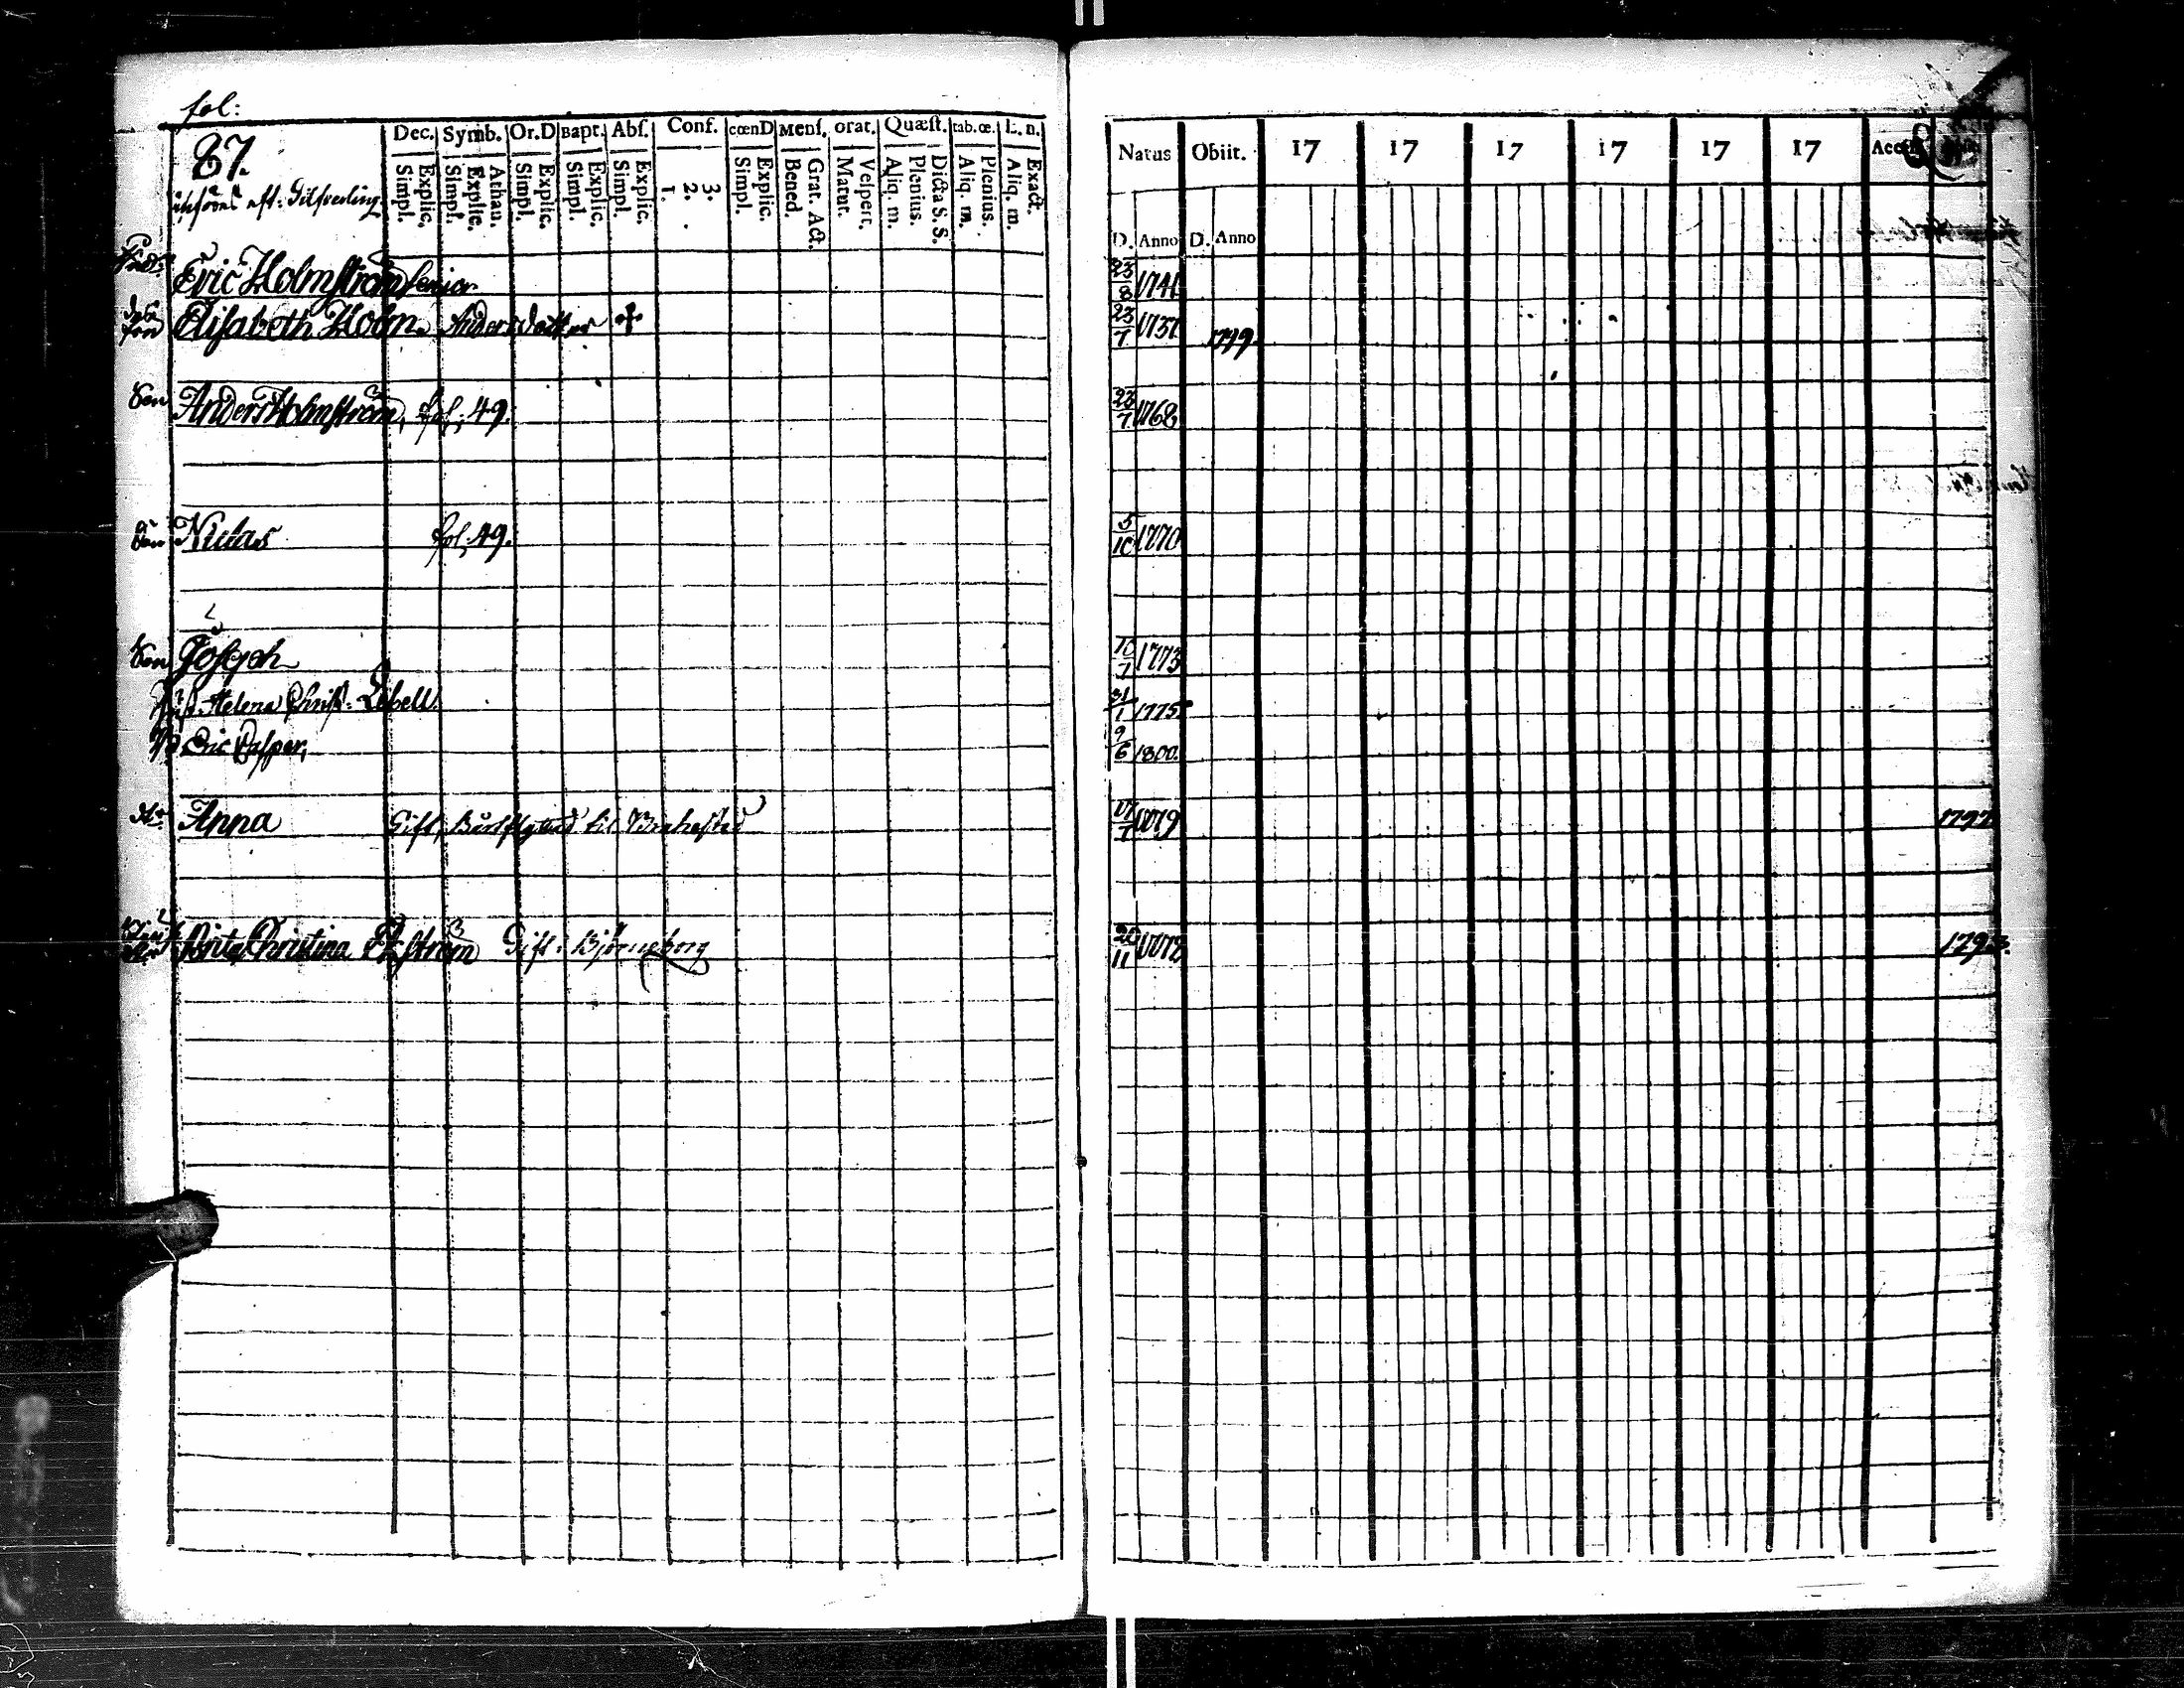 fol:
87.
Dec. Symb. Or.D Bapt. Abſ. Conf. cœnD Menſ. orat. Quæſt. tab.œ. L. n.
Simpl. Explic. Simpl. Explic. Athan. Simpl. Explic. Simpl. Explic. Simpl. Explic. 1. 2. 3. Simpl. Explic. Bened. Grat. Act. Matut. Veſpert. Aliq. m. Plenius. Dicta S. S. Aliq. m. Plenius. Aliq. m. Exact.
Natus Obiit. 17 17 17 17 17 17
D. Anno D. Anno
Eric Holmström Senior 23/8 1741
fru Elisabeth Holm. Andersdotter 23/7 1737 1799
Son Anders Holmström, fol; 49. 23/7 1768
Son Niclas fol; 49. 5/10 1770
Son Joseph 10/7 1773
Helena Christ: Libell 31/1 1775
Eric Casper, 9/6 1800.
Anna Gift, til Brahestad 17/7 1779 1797
Christina Ekström Gift i Björneborg 20/11 1778 1793.